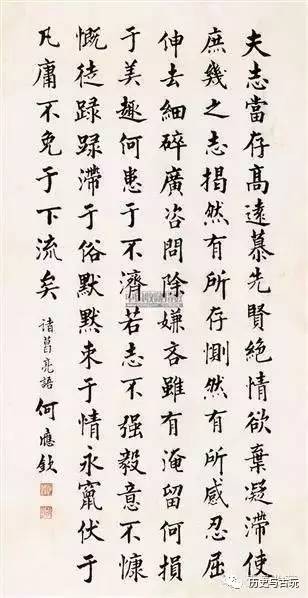 夫志當存高遠慕先賢絕情欲棄凝滯使
庶幾之志揭然有所存惻然有所感忍屈
伸去細碎廣咨問除嫌吝雖有淹留何損
于美趣何患于不濟若志不强毅意不慷
慨徒碌碌滯于俗默默束于情永竄伏于
凡庸不免于下流矣 諸葛亮語 何應欽
历史与古玩